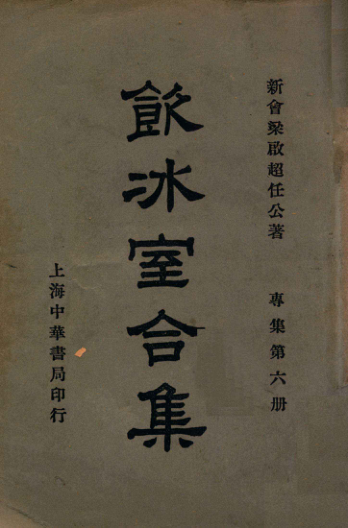 新會梁啟超任公著　專集第六册
飲冰室合集
上海中華書局印行